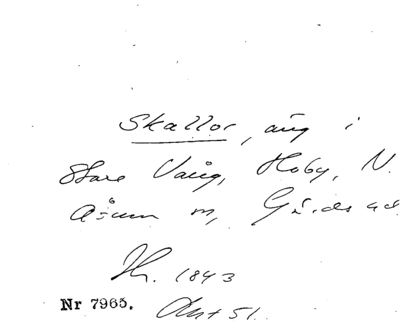 Skallor, äng i
Stora Vång, Hoby, N.
Åsum sn, Gärds hd
Th. 1843
Nr 7965. Akt 51.